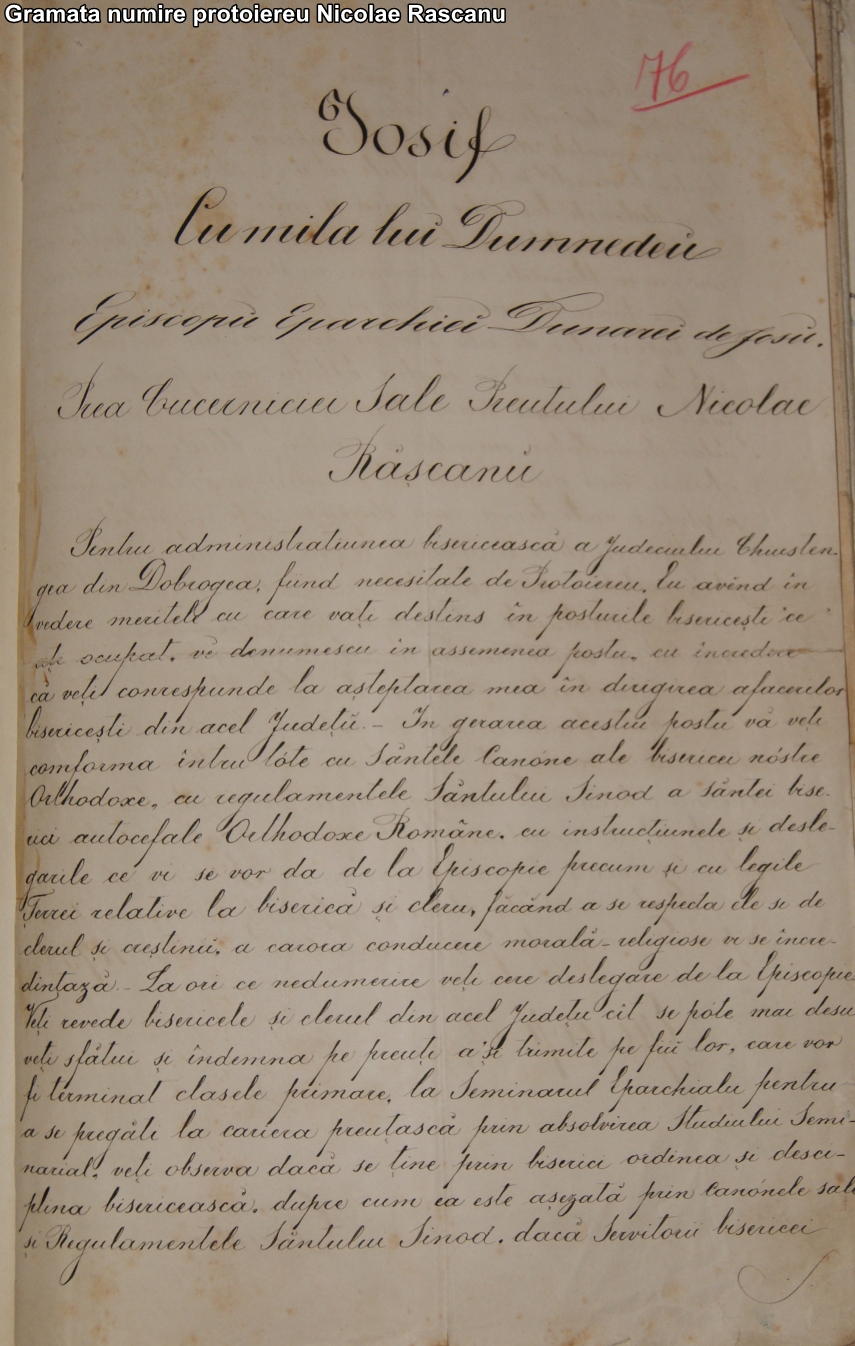 Gramata numire protoiereu Nicolae Rascanu
76
Iosif
Cu mila lui Dumnedeu
Episcopu Eparchiei Dunarei de Josu.
Prea Cucerniciei Sale Preutului Nicolae
Râșcanŭ
Pentru administratiunea bisericească a Judeciului Chiusten-
gea din Dobrogea, fiind necesitate de Protoiereu, Eu avênd în
vedere meritele cu care vați destins în posturile bisericești ce
ați ocupat, vĕ denumescu în assemenea postu, cu încredere
că veți conrespunde la așteptarea mea în dirigirea afacerilor
bisericești din acel Județŭ. - In gerarea acestui postu vă veți
comforma întru tóte cu Sântele Canóne ale bisericei nóstre
Orthodoxe, cu regulamentele Sântului Sinod a sântei bise-
rici autocefale Orthodoxe Române, cu instrucțiunele și desle-
garile ce vi se vor da de la Episcopie precum și cu legile
Țerrei relative la biserică și cleru, făcând a se respecta ele si de
clerul și creștinii, a carora conducere morală-religiose vi se incre-
dintază. - La ori ce nedumerire veți cere deslegare de la Episcopie
Veți revede bisericele și clerul din acel Județu cit se póte mai desu
veți sfătui și îndemna pe preuți a'și trimite pe fiii lor, care vor
fi terminat clasele primare, la Seminarul Eparchialu pentru
a se pregăti la cariera preuțască prin absolvirea Studiului Semi-
narial, veți observa dacă se ține prin biserici ordinea și desci-
plina bisericească, dupre cum ea este așezată prin Canónele sale
și Regulamentele Sântului Sinod, dacă Servitorii bisericei